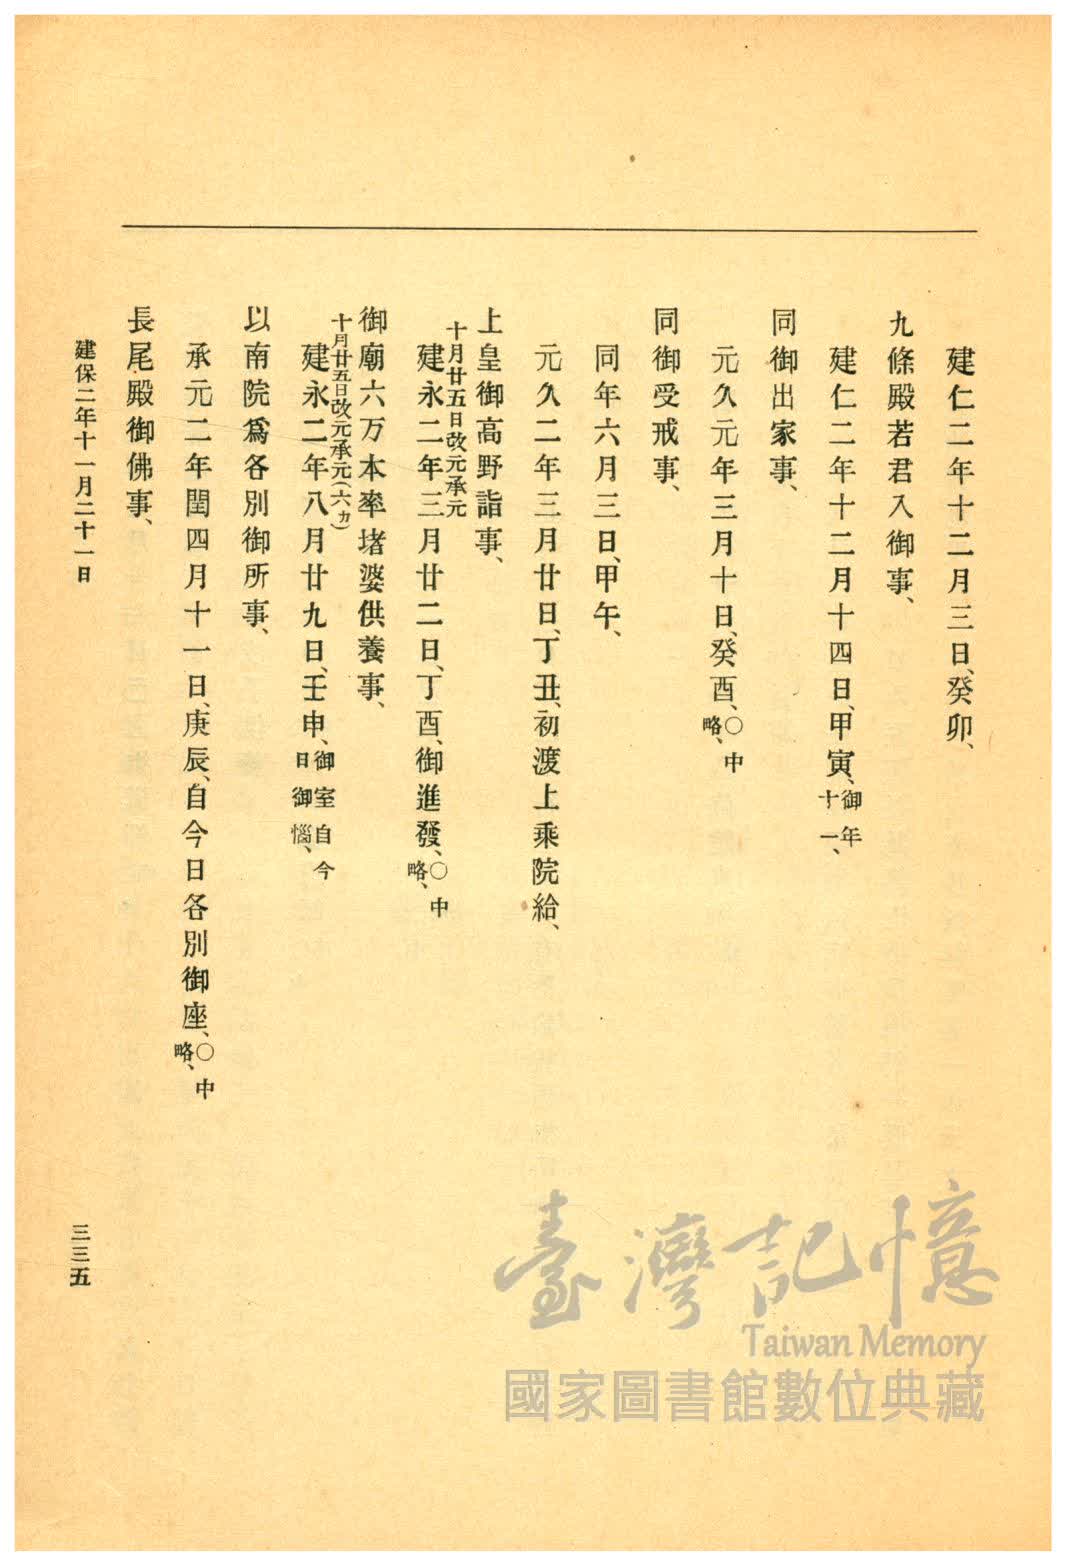 建仁二年十二月三日、癸卯、
九條殿若君入御事、
建仁二年十二月十四日、甲寅、御年十一、
同御出家事、
元久元年三月十日、癸酉、○中略、
同御受戒事、
同年六月三日、甲午、
元久二年三月廿日、丁丑、初渡上乘院給、
上皇御高野詣事、
十月廿五日改元承元
建永二年三月廿二日、丁酉、御進發、○中略、
御廟六万本率堵婆供養事、
十月廿五日改元承元(六カ)
建永二年八月廿九日、壬申、御室自今日御惱、
以南院爲各別御所事、
承元二年閏四月十一日、庚辰、自今日各別御座、○中略、
長尾殿御佛事、
建保二年十一月二十一日
三三五
臺灣記憶
Taiwan Memory
國家圖書館數位典藏